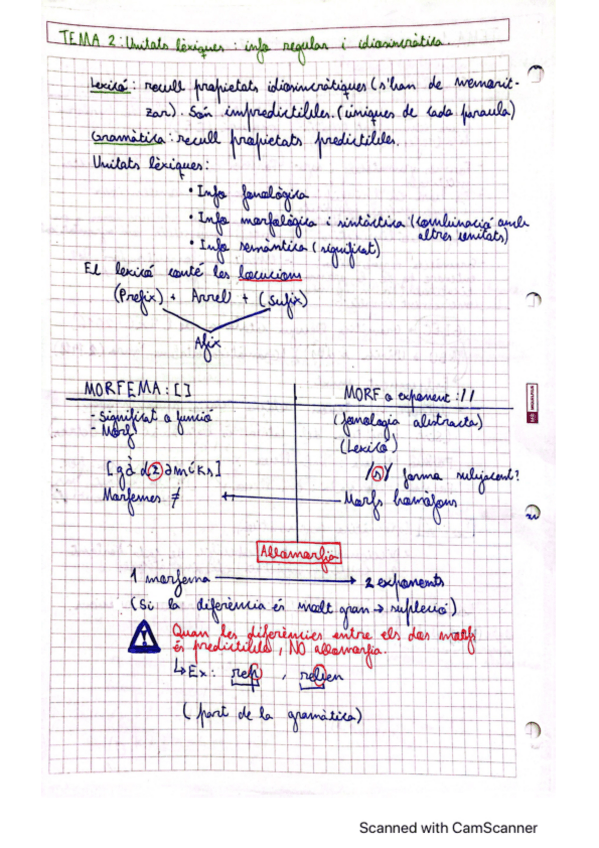 TEMA 2: Unitats lèxiques: info regular i idiosincràtica.
Lexicó: recull propietats idiosincràtiques (s'han de memorit-
zar). Són impredictibles. (úniques de cada paraula)
Gramàtica: recull propietats predictibles.
Unitats lèxiques:
• Info fonològica
• Info morfològica i sintàctica (combinació amb
altres unitats)
• Info semàntica (significat)
El lexicó conté les locucions
(Prefix) + Arrel + (Sufix)
Afix
MORFEMA: [ ]
MORF o exponent: / /
- Significat o funció
- Morf
(fonologia abstracta)
(Lexicó)
[gàdzəmíks]
/s/ forma subjacent?
Morfemes ≠ ← Morfs homòfons
Al·lomorfia
1 morfema → 2 exponents
(Si la diferència és molt gran → supleció)
Quan les diferències entre els dos motifs
és predictible, NO al·lomorfia.
↳ Ex: rep, reben
(part de la gramàtica)
Scanned with CamScanner